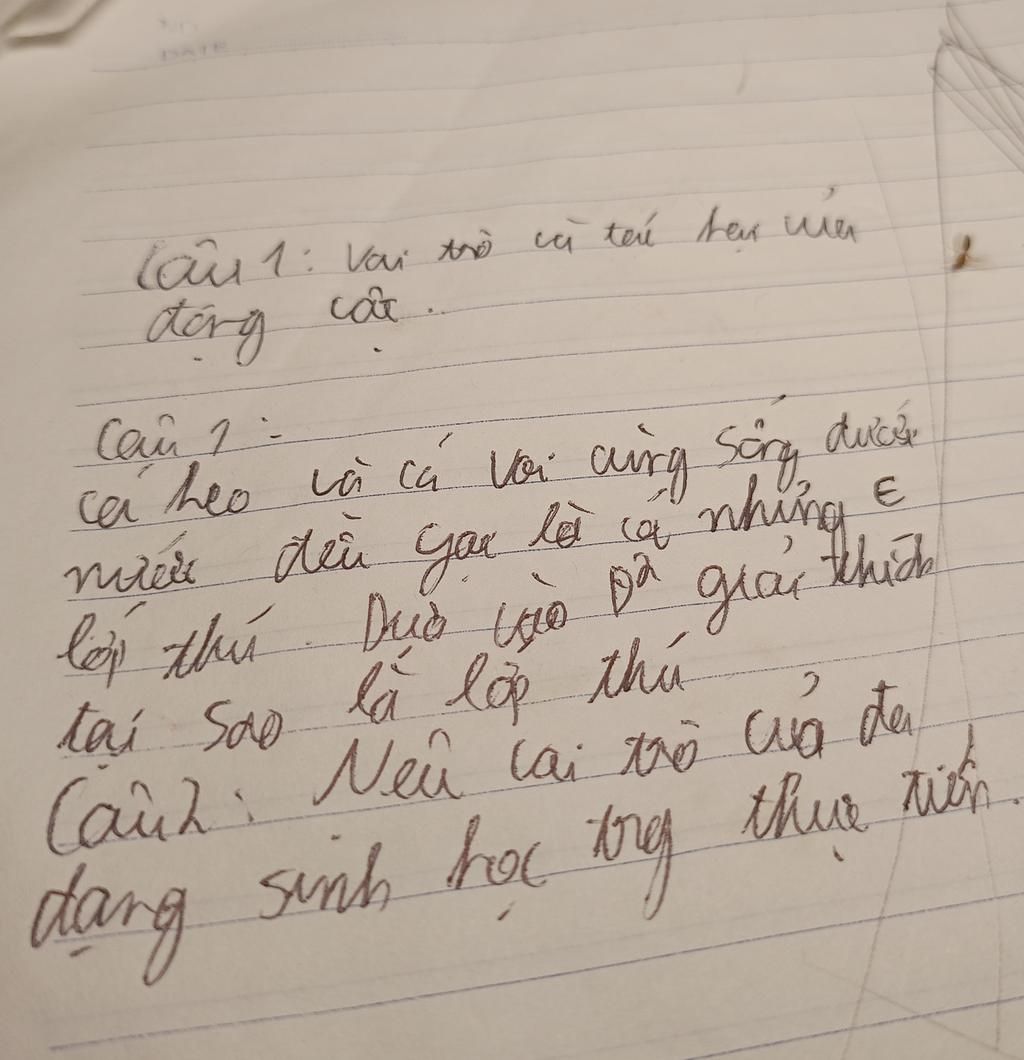 DATE
Câu 1: Vai trò và tác hại của
động vật.
Câu 1:
cá heo và cá voi cùng sống dưới
nước đều gọi là cá nhưng ∈
lớp thú. Dựa vào Đ² giải thích
tại sao là lớp thú
Câu 2: Nêu vai trò của đa
dạng sinh học trg thực tiễn.